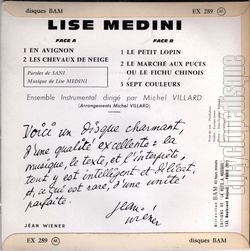 disques BAM
EX 289 M
LISE MEDINI
FACE A
FACE B
1 EN AVIGNON
2 LES CHEVAUX DE NEIGE
Paroles de SANI
Musique de Lise MEDINI
1 LE PETIT LOPIN
2 LE MARCHÉ AUX PUCES
OU LE FICHU CHINOIS
3 SEPT COULEURS
Ensemble Instrumental dirigé par Michel VILLARD
(Arrangements Michel VILLARD)
Voici un disque charmant,
d'une qualité excellente : la
musique, le texte, et l'interprète,
tout y est intelligent et délicat,
et, ce qui est rare, d'une unité
parfaite.
Jean
Wiener
JEAN WIENER
EX 289 M
disques BAM